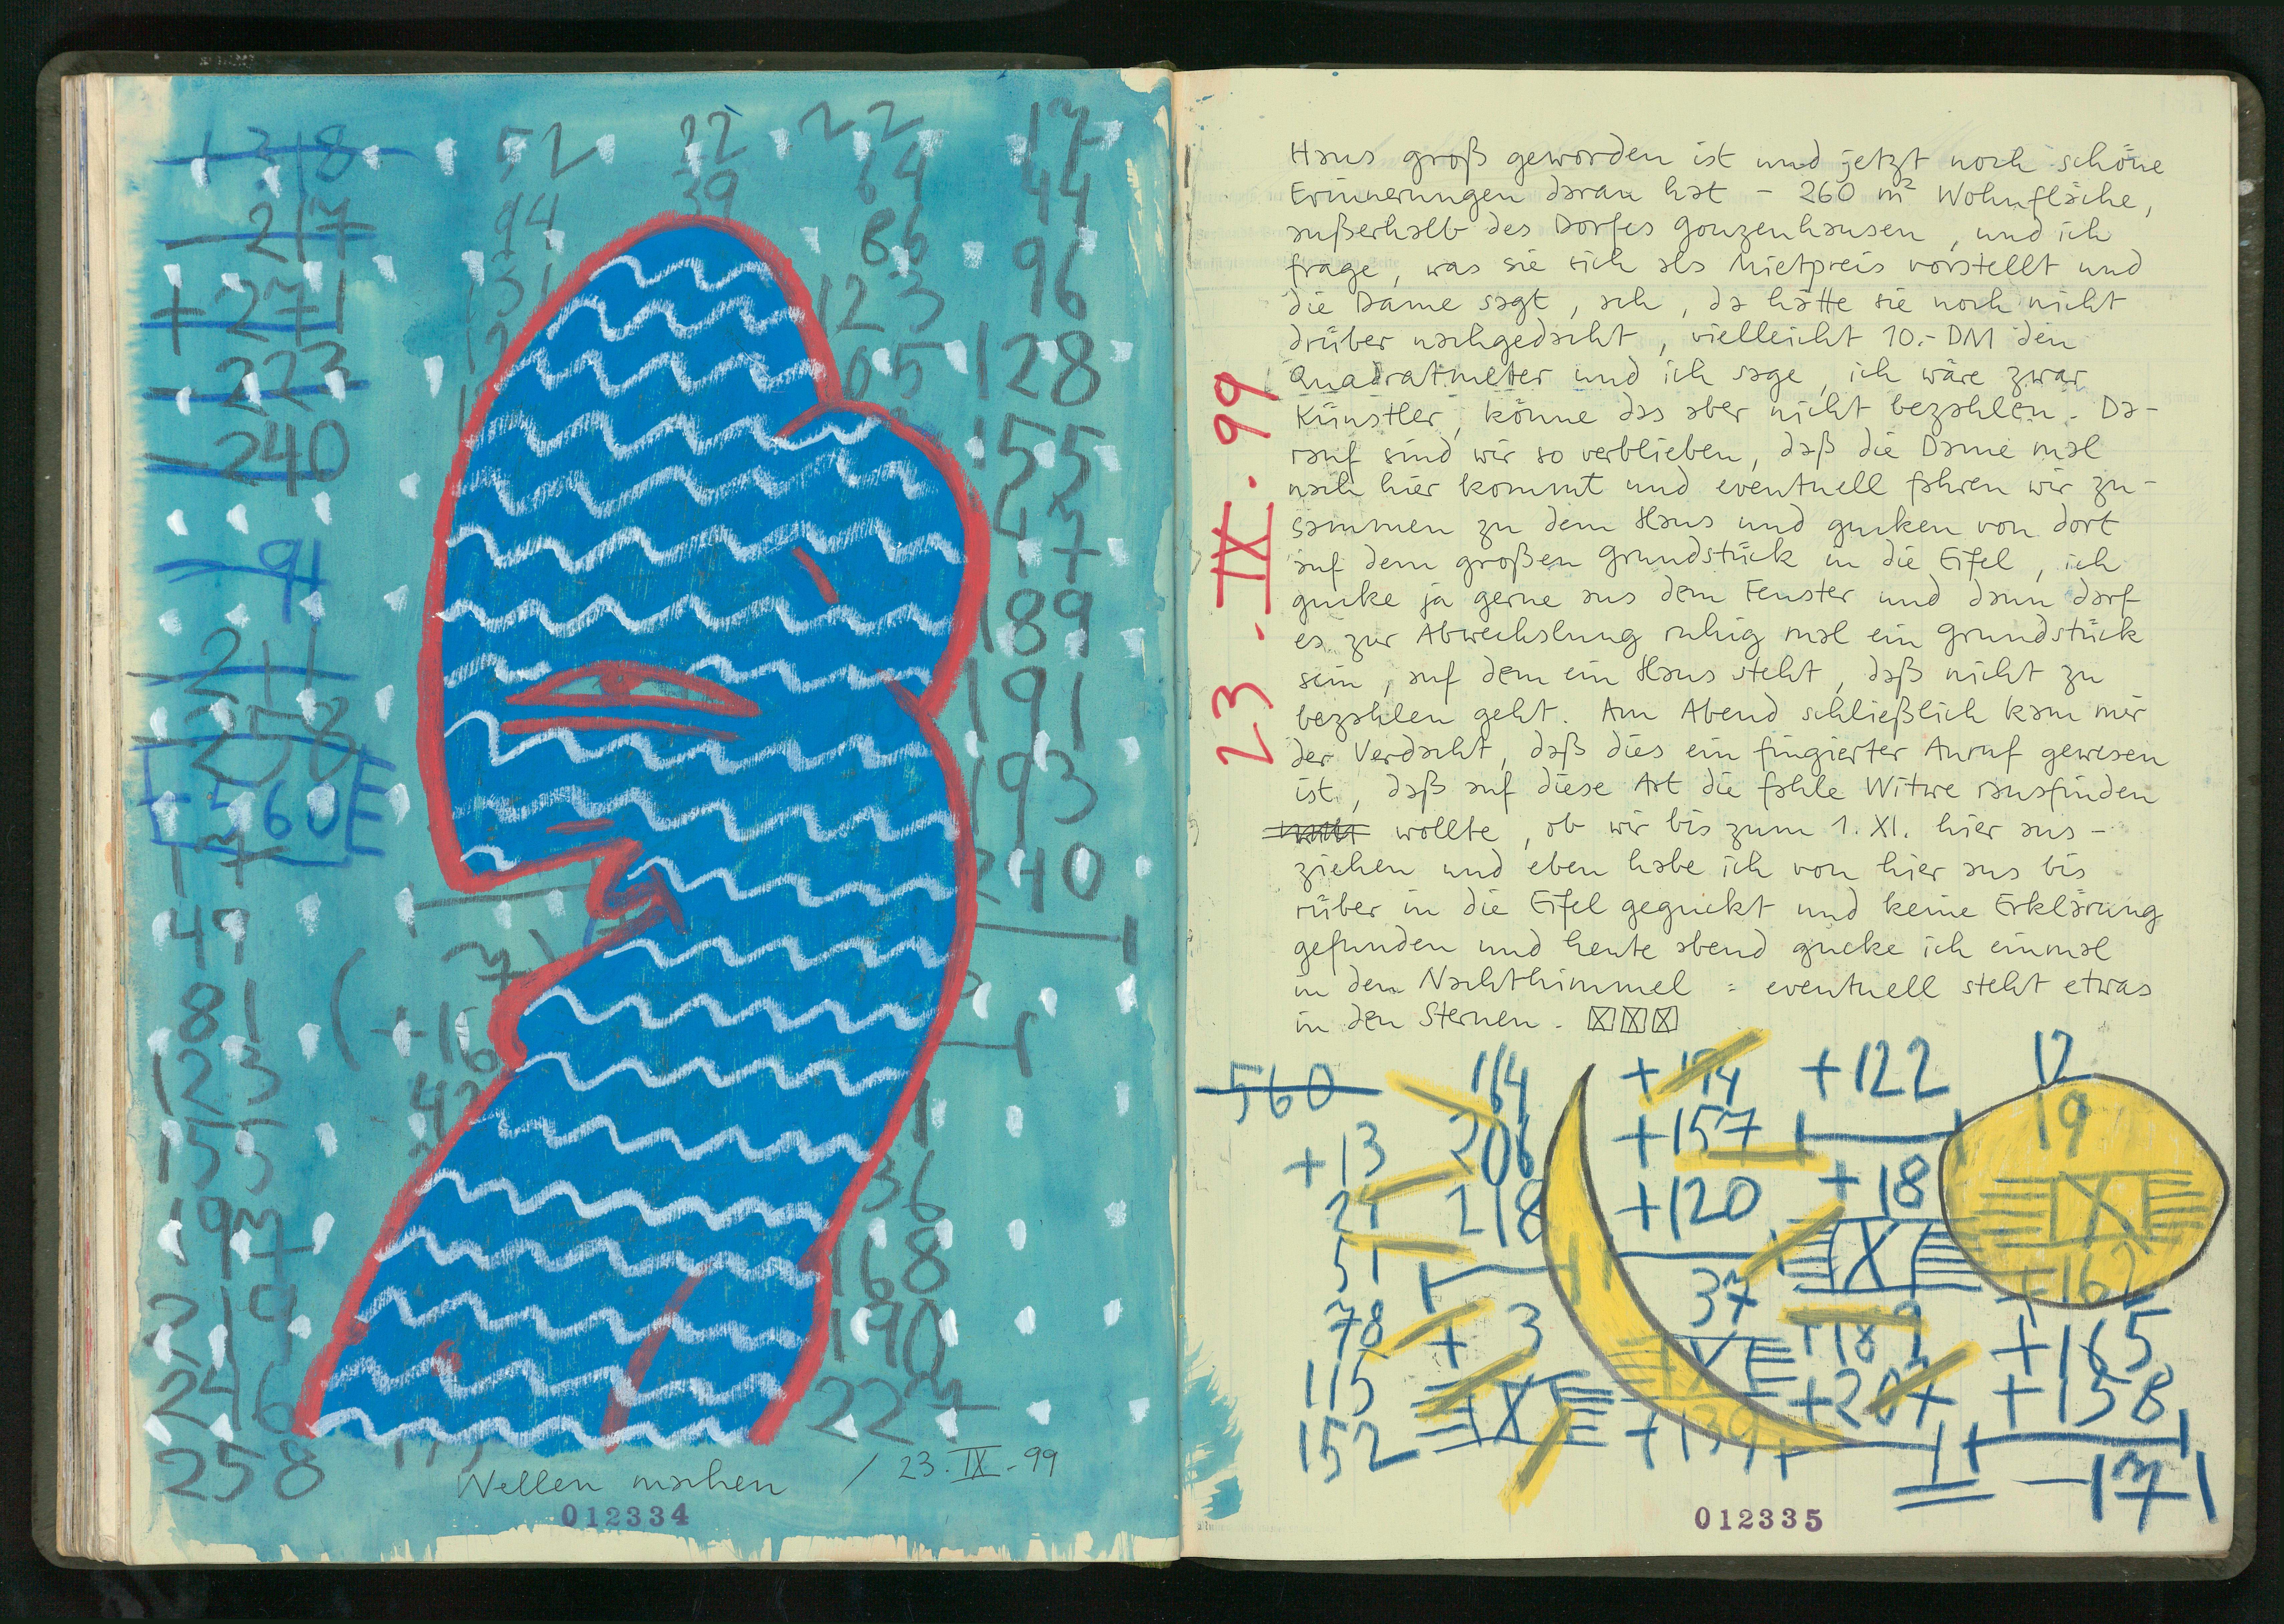 +318
- 217
+271
- 223
- 240
- 91
- 211
- 258
- 560
17
49
81
123
155
197
219
246
258
52
94
131
22
39
22
64
86
123
105
17
44
96
128
155
147
189
191
193
240
( 7)
+16
42
36
168
190
227
Wellen machen / 23.IX.99
012334
23.IX.99
Haus groß geworden ist und jetzt noch schöne
Erinnerungen daran hat – 260 m² Wohnfläche,
außerhalb des Dorfes Gonzenhausen, und ich
frage, was sie sich als Mietpreis vorstellt und
die Dame sagt, ach, da hätte sie noch nicht
drüber nachgedacht, vielleicht 10.- DM den
Quadratmeter und ich sage, ich wäre zwar
Künstler, könne das aber nicht bezahlen. Da-
rauf sind wir so verblieben, daß die Dame mal
nach hier kommt und eventuell fahren wir zu-
sammen zu dem Haus und gucken von dort
auf dem großen Grundstück in die Eifel, ich
gucke ja gerne aus dem Fenster und dann darf
es zur Abwechslung ruhig mal ein Grundstück
sein, auf dem ein Haus steht, daß nicht zu
bezahlen geht. Am Abend schließlich kam mir
der Verdacht, daß dies ein fingierter Anruf gewesen
ist, daß auf diese Art die fahle Witwe rausfinden
wollte, ob wir bis zum 1. XI. hier aus-
ziehen und eben habe ich von hier aus bis
rüber in die Eifel geguckt und keine Erklärung
gefunden und heute abend gucke ich einmal
in den Nachthimmel : eventuell steht etwas
in den Sternen.
560
+13
24
51
78
115
152
164
206
218
+ 3
IX
+174
+157
+120
37
IX
+139
+122
+18
IX
+189
+207
12
19
IX
+162
+165
+158
-171
012335